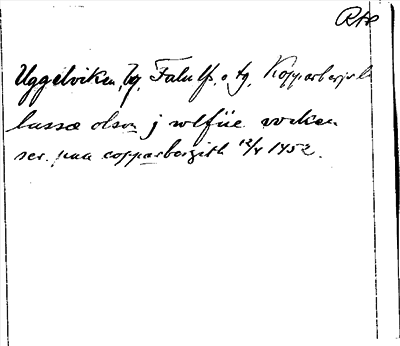 RAp
Uggelviken, bg, Falu lfs. o tg, Kopparbergs l
lasse olson j wlfüe wiken
scr. paa copparbergith 12/5 1452.